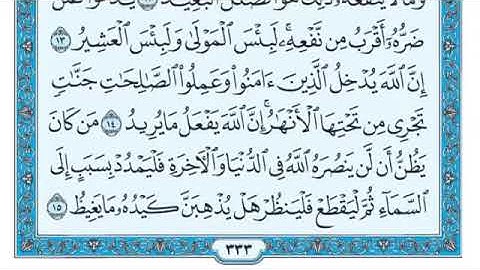 وَمَا لَا يَنفَعُهُۥ ۚ ذَٰلِكَ هُوَ ٱلضَّلَٰلُ ٱلْبَعِيدُ ١٢ يَدْعُوا۟ لَمَن
ضَرُّهُۥٓ أَقْرَبُ مِن نَّفْعِهِۦ ۚ لَبِئْسَ ٱلْمَوْلَىٰ وَلَبِئْسَ ٱلْعَشِيرُ ١٣
إِنَّ ٱللَّهَ يُدْخِلُ ٱلَّذِينَ ءَامَنُوا۟ وَعَمِلُوا۟ ٱلصَّٰلِحَٰتِ جَنَّٰتٍ
تَجْرِى مِن تَحْتِهَا ٱلْأَنْهَٰرُ ۚ إِنَّ ٱللَّهَ يَفْعَلُ مَا يُرِيدُ ١٤ مَن كَانَ
يَظُنُّ أَن لَّن يَنصُرَهُ ٱللَّهُ فِى ٱلدُّنْيَا وَٱلْءَاخِرَةِ فَلْيَمْدُدْ بِسَبَبٍ إِلَى
ٱلسَّمَآءِ ثُمَّ لْيَقْطَعْ فَلْيَنظُرْ هَلْ يُذْهِبَنَّ كَيْدُهُۥ مَا يَغِيظُ ١٥
٣٣٣